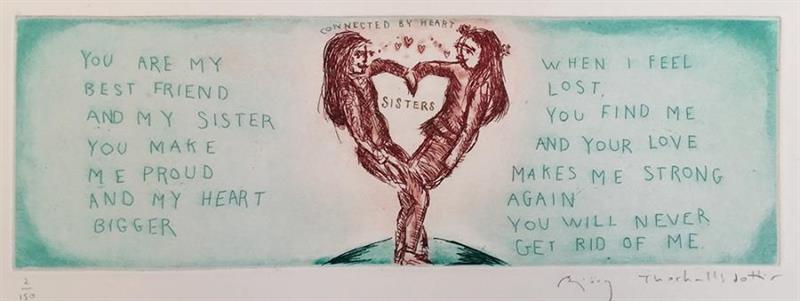 CONNECTED BY HEART
YOU ARE MY
BEST FRIEND
AND MY SISTER
YOU MAKE
ME PROUD
AND MY HEART
BIGGER
SISTERS
WHEN I FEEL
LOST,
YOU FIND ME
AND YOUR LOVE
MAKES ME STRONG
AGAIN
YOU WILL NEVER
GET RID OF ME.
2
150
Bjørg Thorhallsdottir